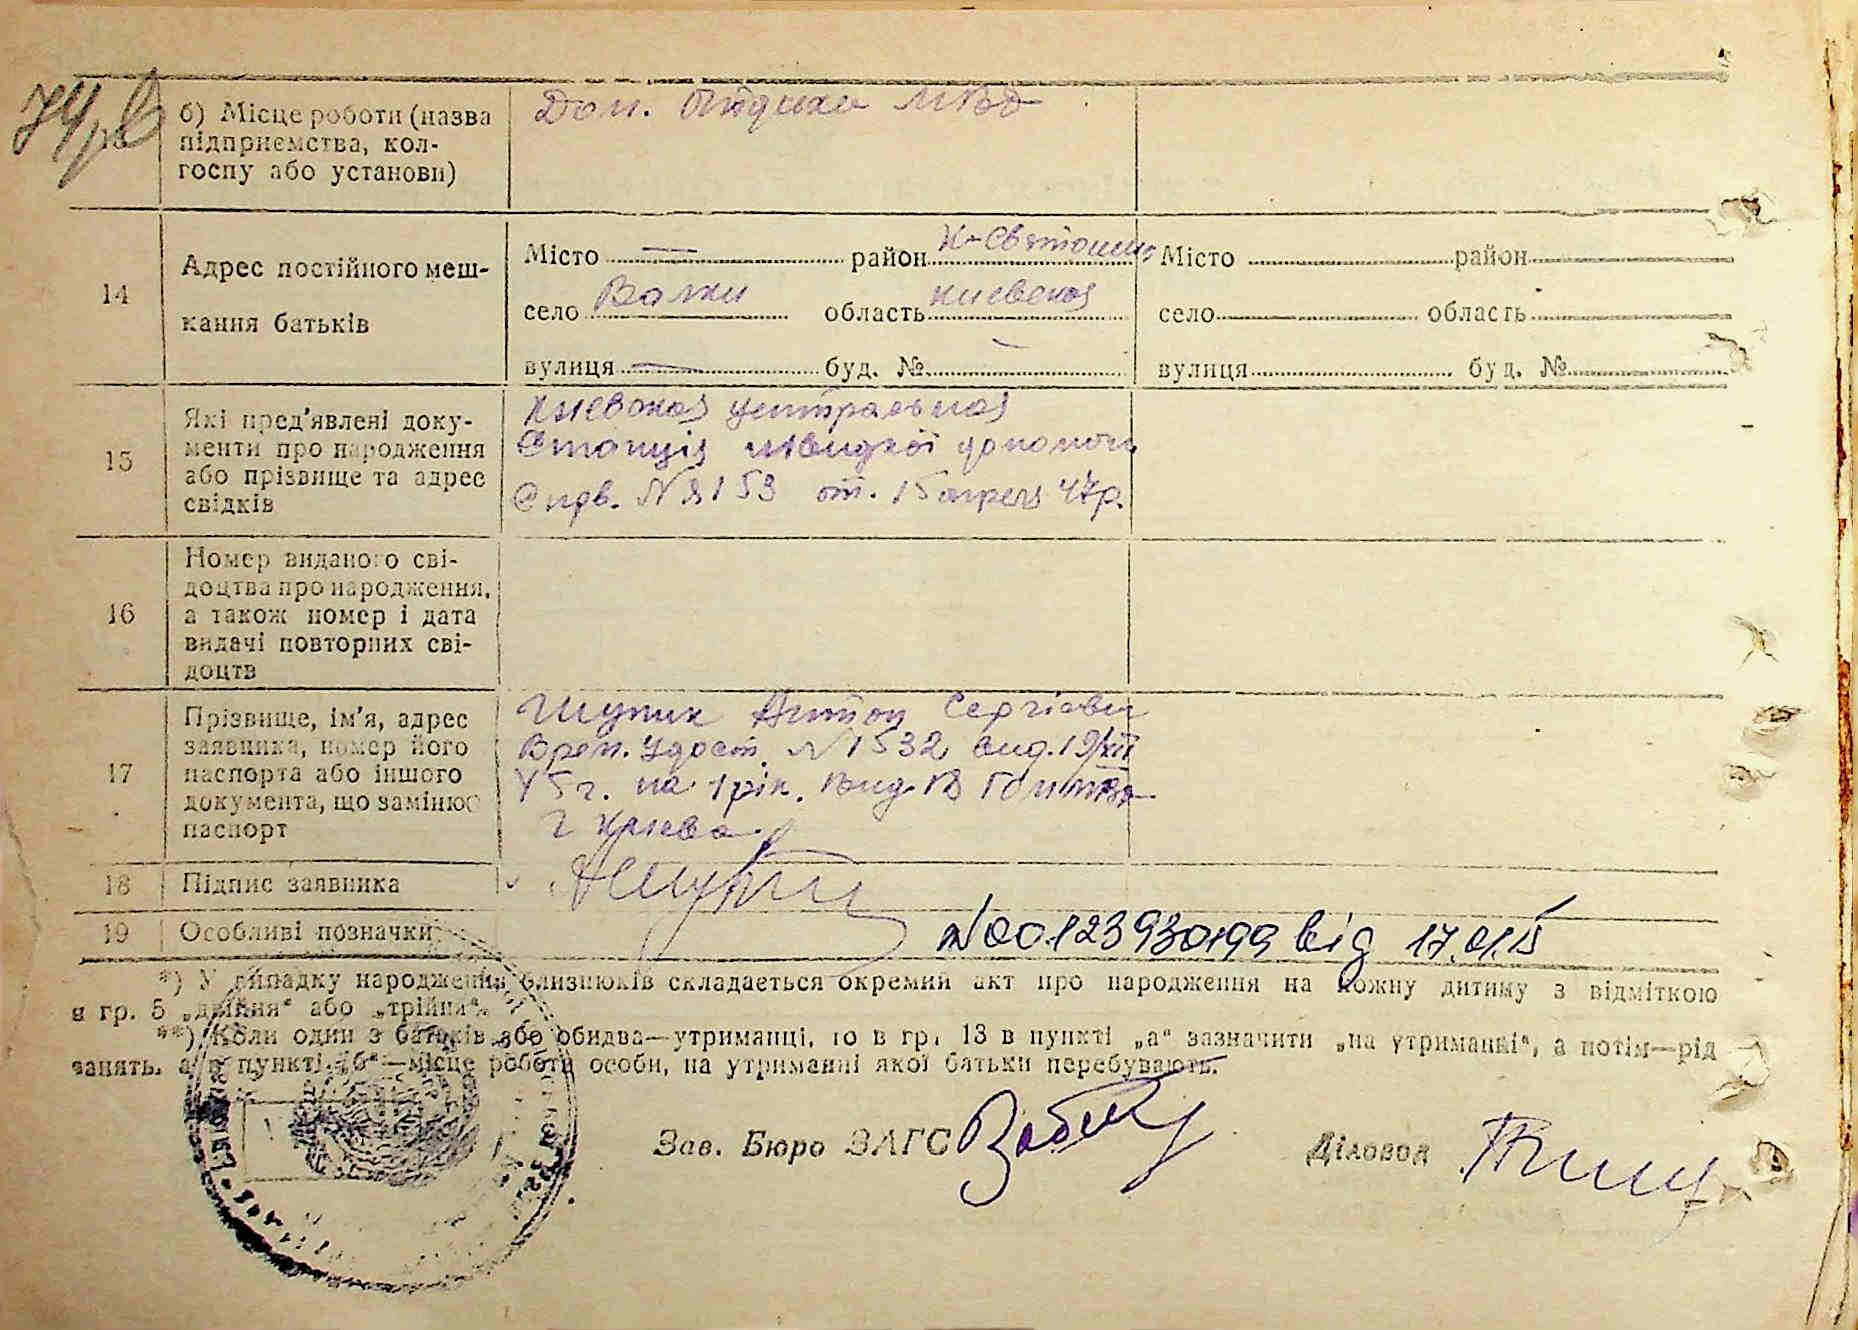 74
13
б) Місце роботи (назва
підприємства, кол-
госпу або установи)
Дом.
14
Адрес постійного меш-
кання батьків
Місто — район К-Святошин
село область киевская
вулиця — буд. №
Місто район
село область
вулиця буд. №
15
Які пред'явлені доку-
менти про народження
або прізвище та адрес
свідків
Киевская центральная
Станція швидкої допомоги
от. 15 апреля 47р.
16
Номер виданого сві-
доцтва про народження,
а також номер і дата
видачі повторних сві-
доцтв
17
Прізвище, ім'я, адрес
заявника, номер його
паспорта або іншого
документа, що замінює
паспорт
Шупик Антон Сергіевич
Врем. Удост. N 1532 вид. 19/XII
45г. на 1 рік. Вид.
г Києва
18
Підпис заявника
19
Особливі позначки
N00123930199 від 17.01.15
*) У випадку народження близнюків складається окремий акт про народження на кожну дитину з відміткою
в гр. 5 „двійня“ або „трійня“.
**) Коли один з батьків або обидва—утриманці, то в гр. 13 в пункті „а“ зазначити „на утриманні“, а потім—рід
занять, а в пункті „б“—місце роботи особи, на утриманні якої батьки перебувають.
Зав. Бюро ЗАГС
Діловод